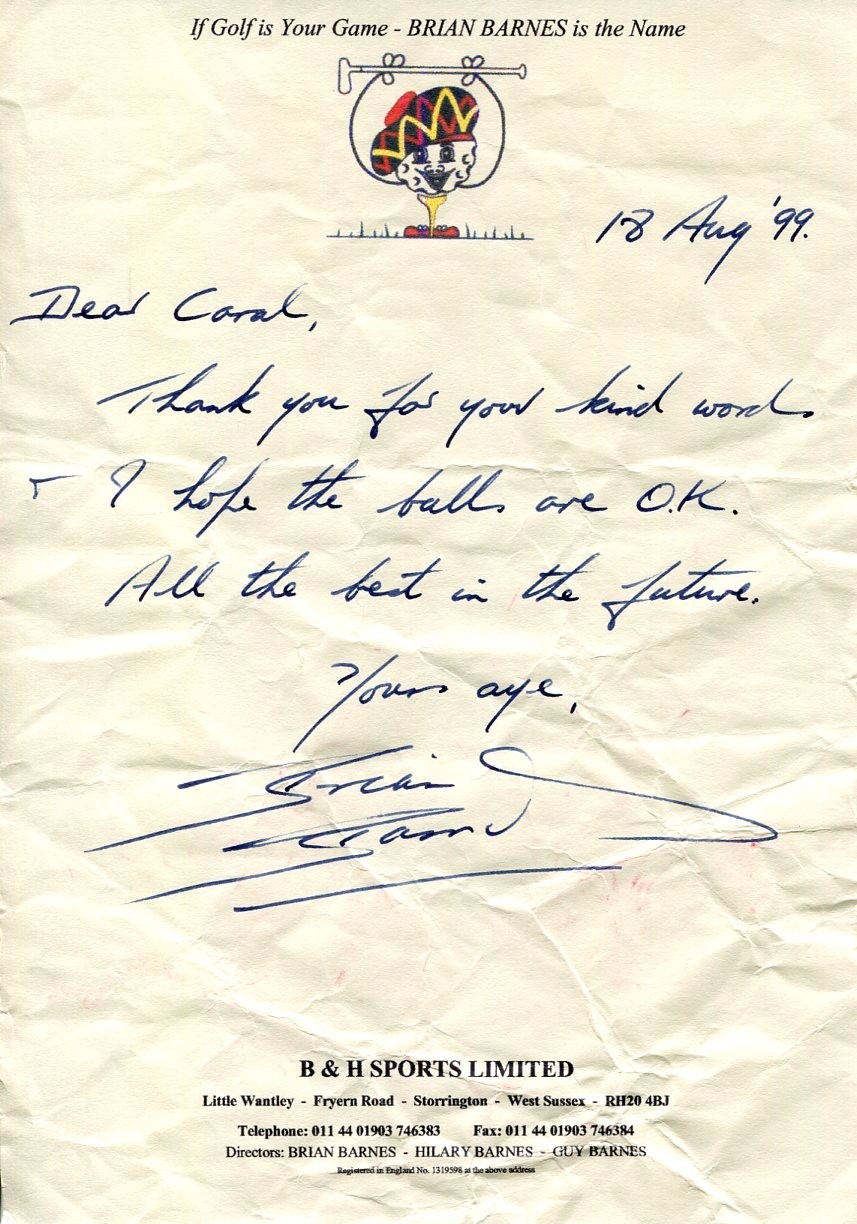 If Golf is Your Game - BRIAN BARNES is the Name
18 Aug '99.
Dear Coral,
Thank you for your kind words
- I hope the balls are O.K.
All the best in the future.
Yours aye,
Brian
Barnes
B & H SPORTS LIMITED
Little Wantley - Fryern Road - Storrington - West Sussex - RH20 4BJ
Telephone: 011 44 01903 746383 Fax: 011 44 01903 746384
Directors: BRIAN BARNES - HILARY BARNES - GUY BARNES
Registered in England No. 1319598 at the above address